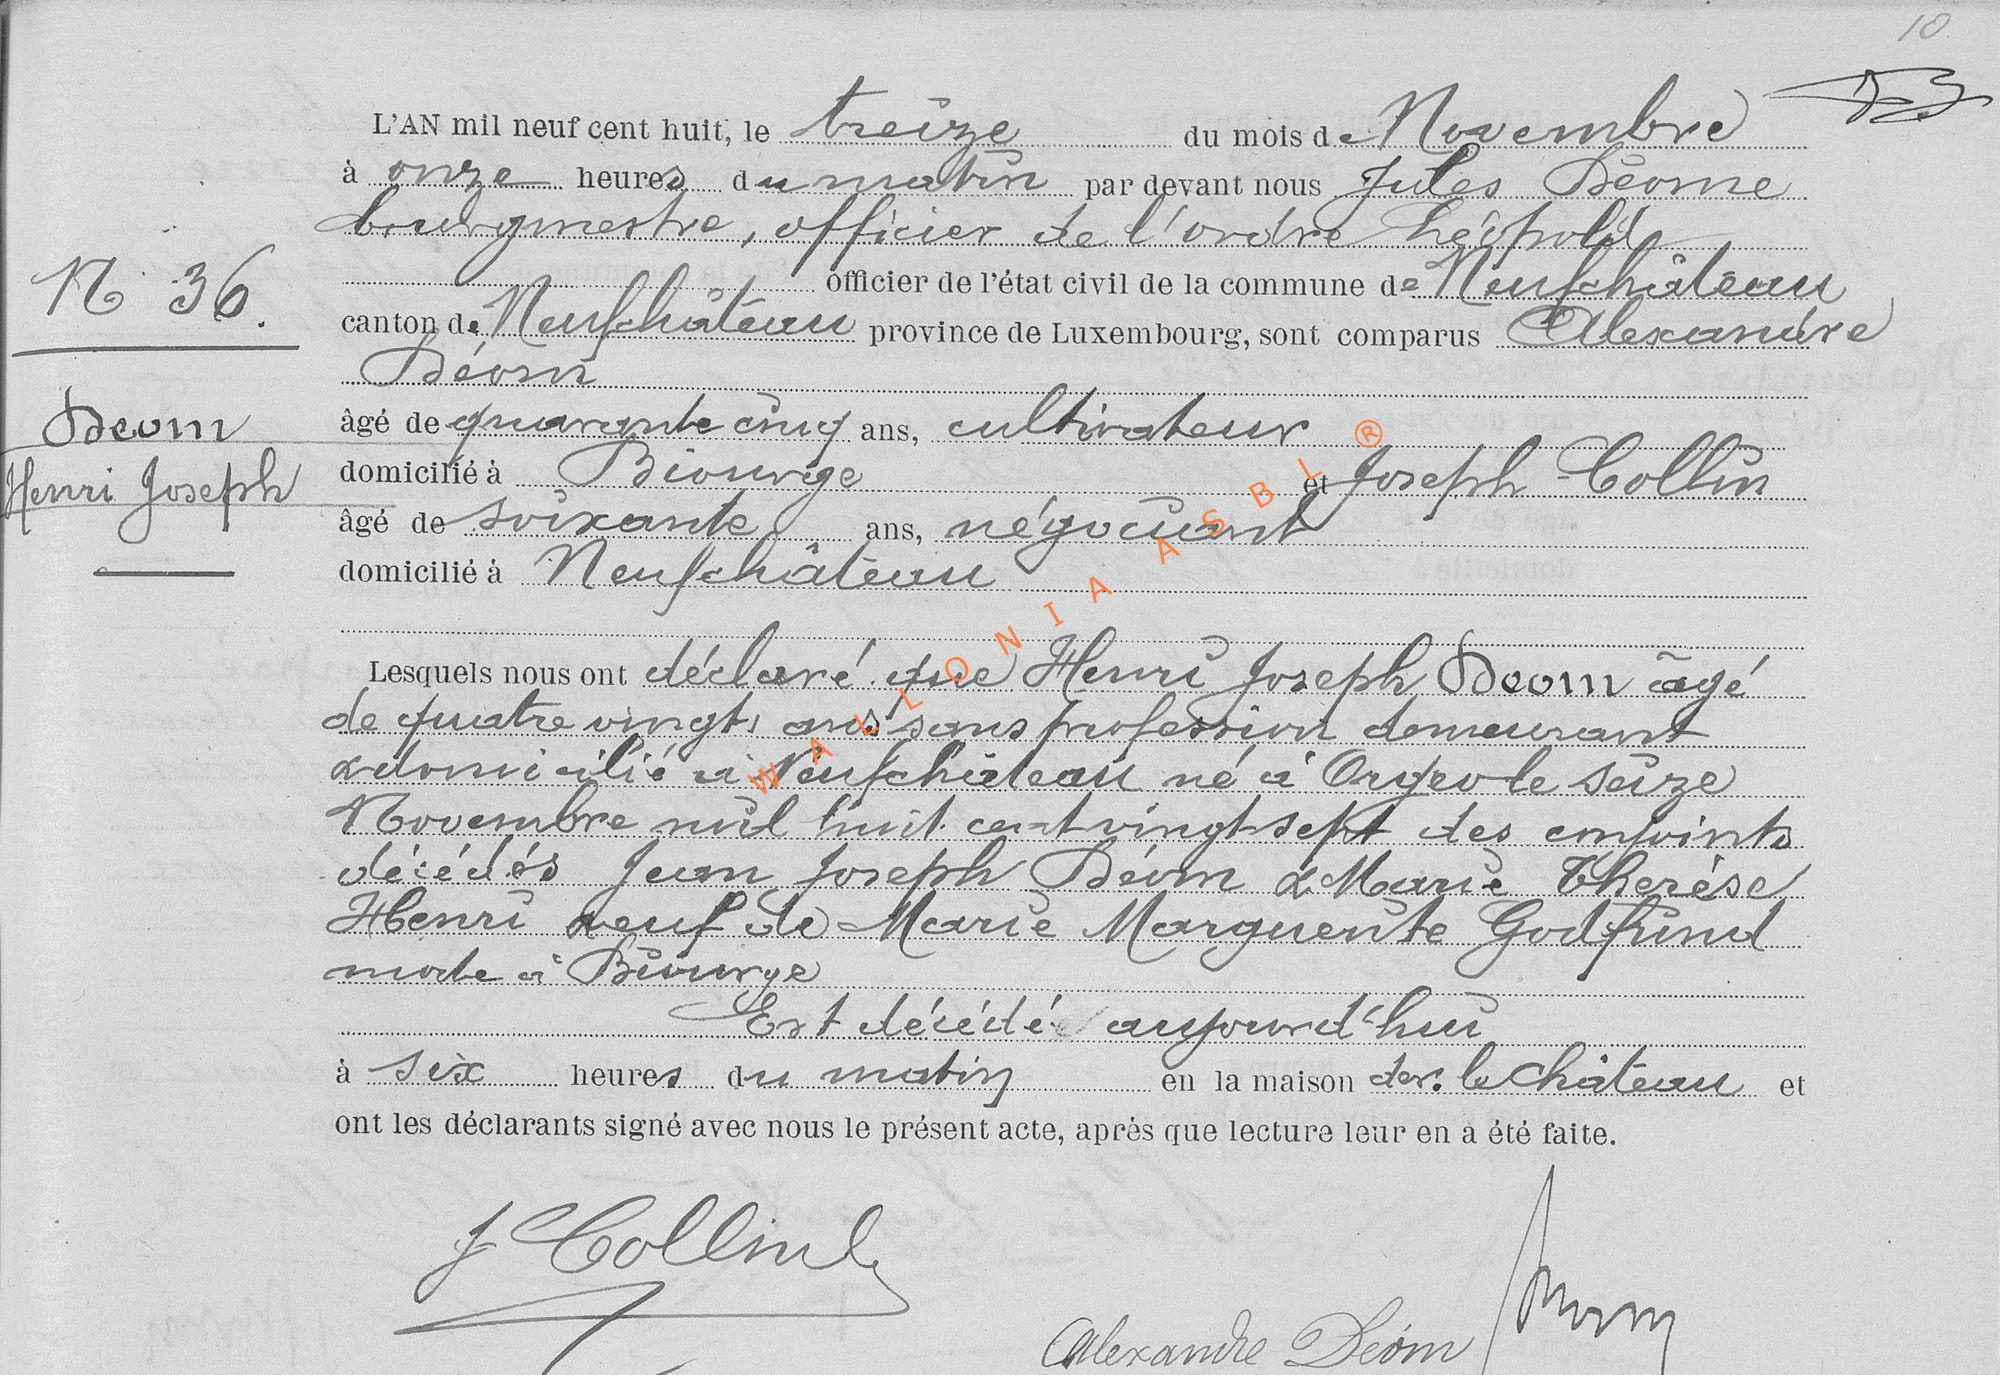 10
L'AN mil neuf cent huit, le treize du mois de Novembre
à onze heures du matin par devant nous Jules Déome
bourgmestre, officier de l'ordre Léopold
officier de l'état civil de la commune de Neufchâteau
N 36.
canton de Neufchâteau province de Luxembourg, sont comparus Alexandre
Déom
âgé de quarante cinq ans, cultivateur
Deom
Henri Joseph
domicilié à Biourge et Joseph Collin
âgé de soixante ans, négociant
domicilié à Neufchâteau
Lesquels nous ont déclaré que Henri Joseph Deom âgé
de quatre vingts ans sans profession demeurant
& domicilié à Neufchâteau né à Orgeo le seize
Novembre mil huit cent vingt sept des conjoints
décédés Jean Joseph Déom & Marie Therèse
Henri veuf de Marie Marguerite Godfrind
morte à Biourge
Est décédé aujourd'hui
à six heures du matin en la maison der. le château et
ont les déclarants signé avec nous le présent acte, après que lecture leur en a été faite.
J Collin
Alexandre Déom
WALLONIA ASBL ®